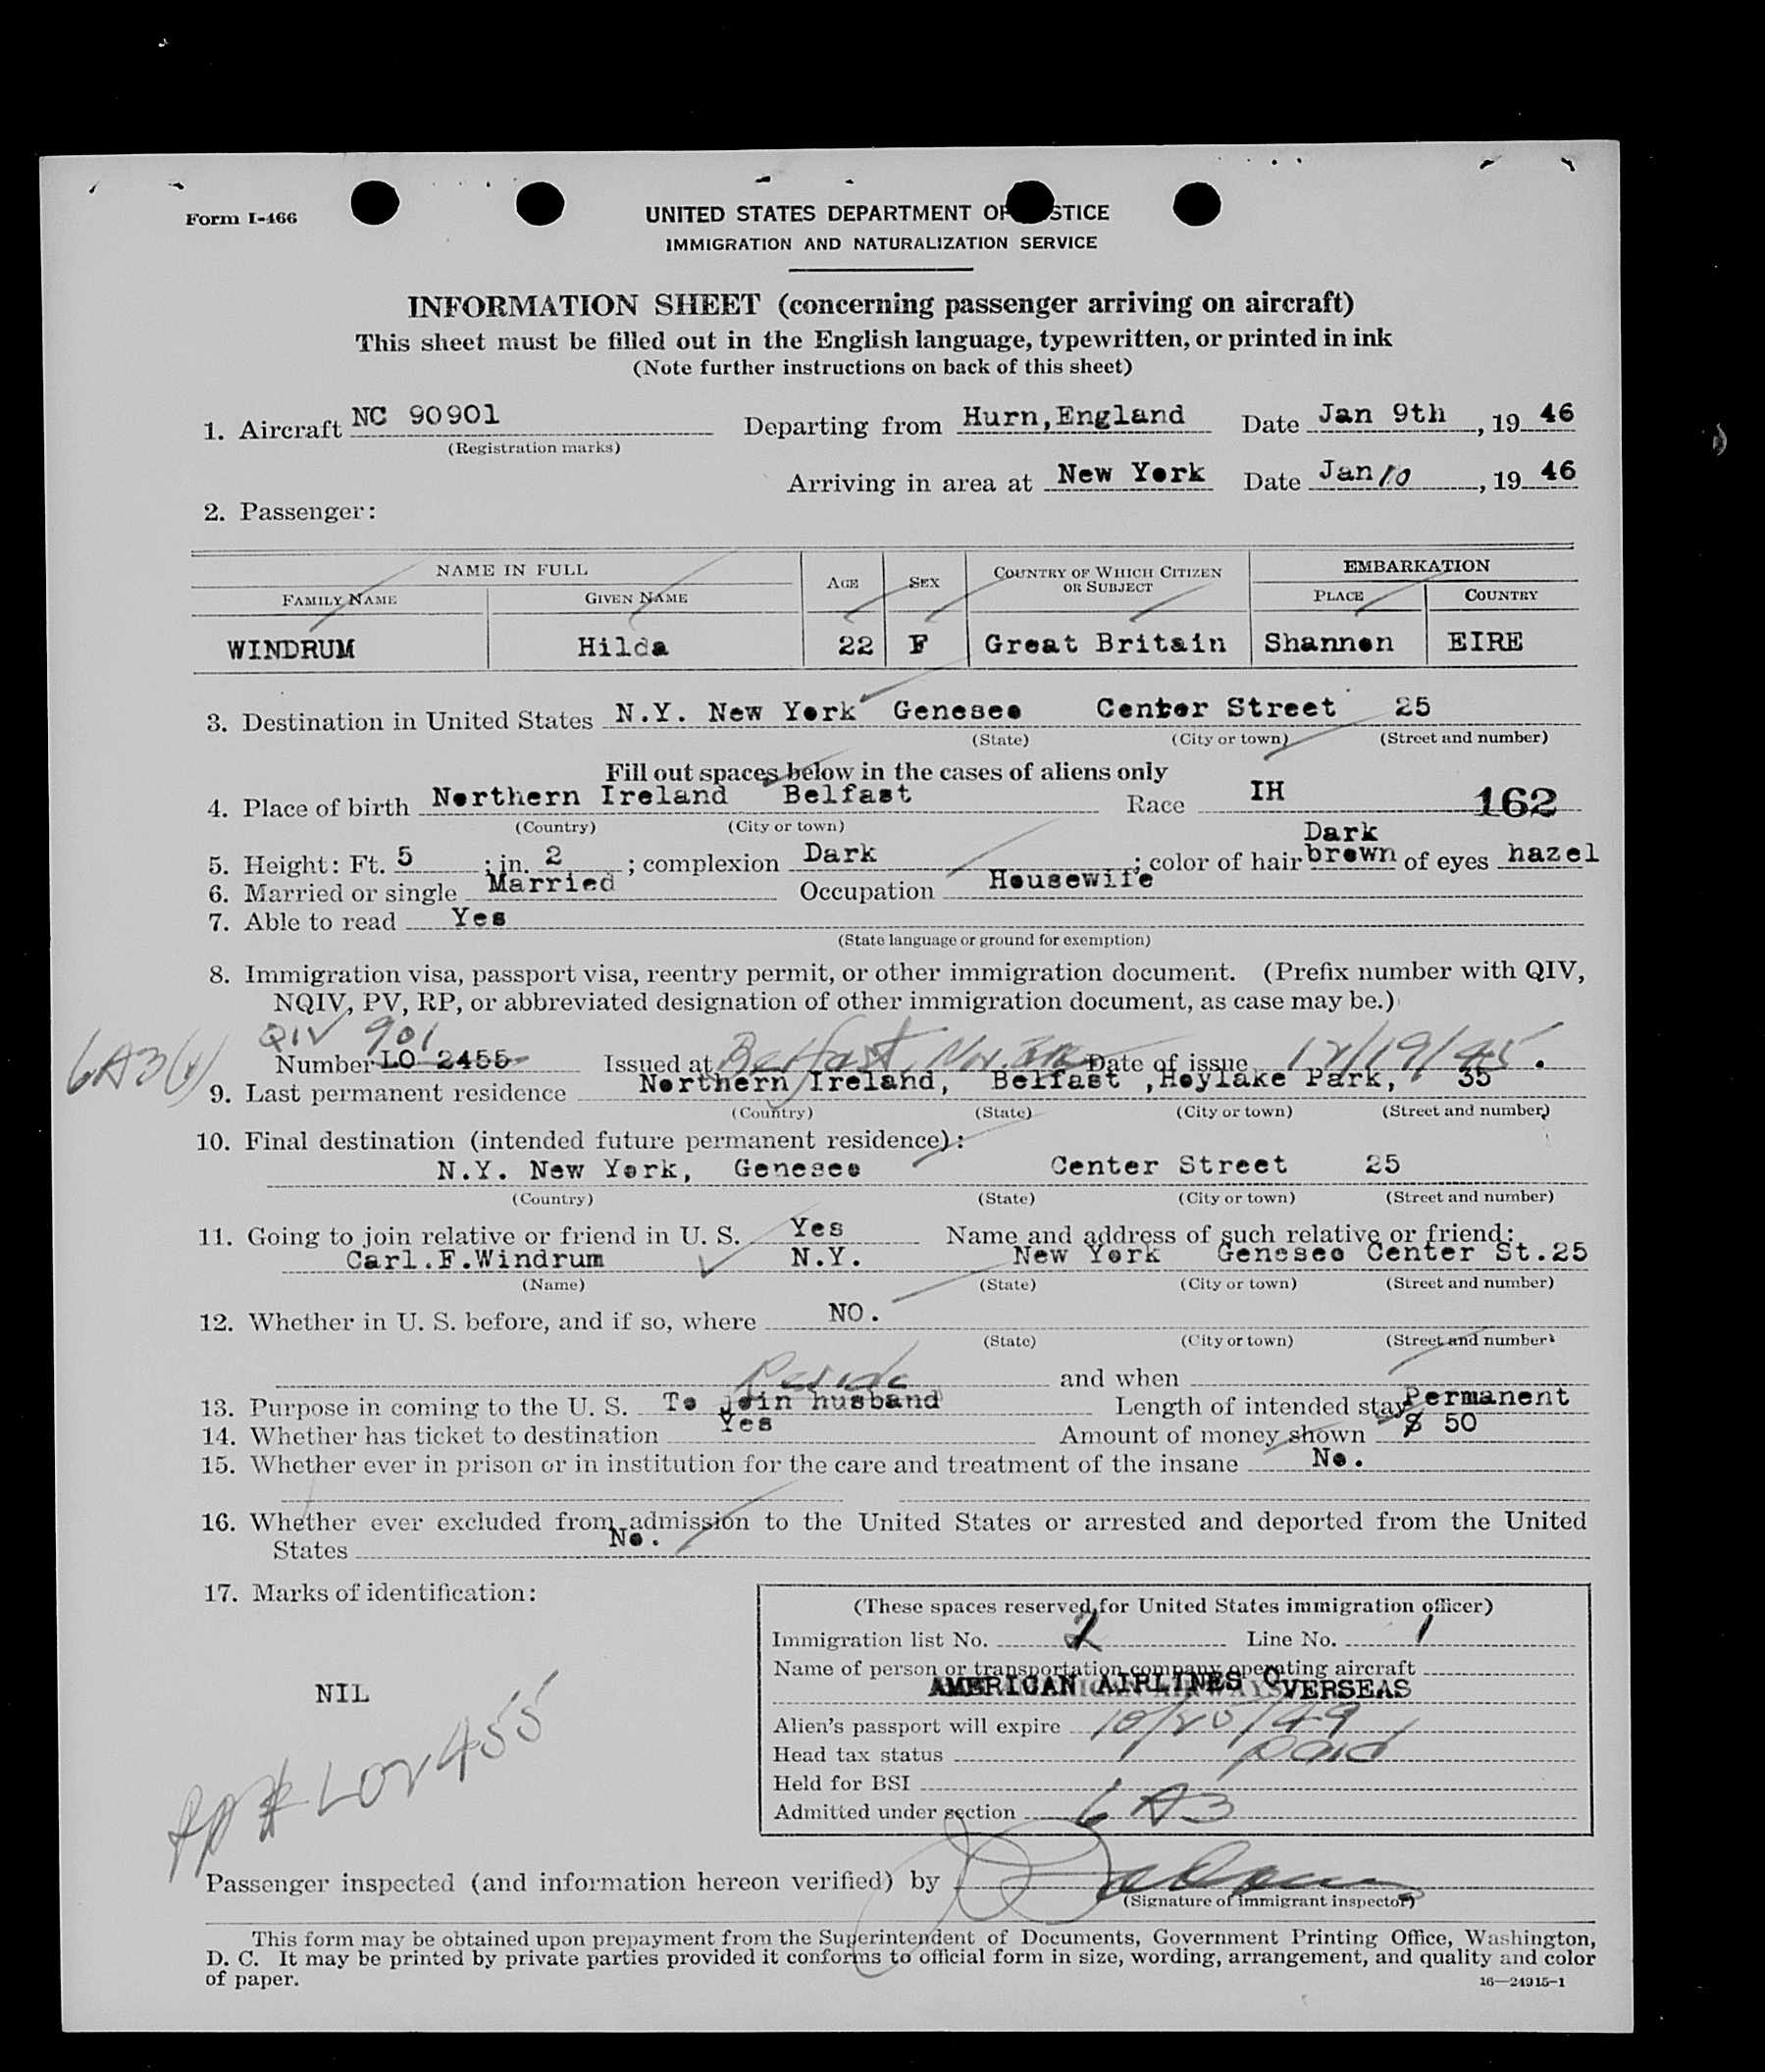 Form I-466
UNITED STATES DEPARTMENT OF JUSTICE
IMMIGRATION AND NATURALIZATION SERVICE
INFORMATION SHEET (concerning passenger arriving on aircraft)
This sheet must be filled out in the English language, typewritten, or printed in ink
(Note further instructions on back of this sheet)
1. Aircraft NC 90901 Departing from Hurn,England Date Jan 9th , 19 46
(Registration marks)
Arriving in area at New York Date Jan 10 , 19 46
2. Passenger:
NAME IN FULL AGE SEX COUNTRY OF WHICH CITIZEN OR SUBJECT EMBARKATION
FAMILY NAME GIVEN NAME PLACE COUNTRY
WINDRUM Hilda 22 F Great Britain Shannon EIRE
3. Destination in United States N.Y. New York Geneseo Center Street 25
(State) (City or town) (Street and number)
Fill out spaces below in the cases of aliens only
4. Place of birth Northern Ireland Belfast Race IH 162
(Country) (City or town)
5. Height: Ft. 5 ; in. 2 ; complexion Dark ; color of hair Dark brown of eyes hazel
6. Married or single Married Occupation Housewife
7. Able to read Yes
(State language or ground for exemption)
8. Immigration visa, passport visa, reentry permit, or other immigration document. (Prefix number with QIV,
NQIV, PV, RP, or abbreviated designation of other immigration document, as case may be.)
QIV 901
6A3(v) Number LO 2455 Issued at Belfast, Nor. Ire Date of issue 12/19/45.
9. Last permanent residence Northern Ireland, Belfast ,Hoylake Park, 35
(Country) (State) (City or town) (Street and number)
10. Final destination (intended future permanent residence):
N.Y. New York, Geneseo Center Street 25
(Country) (State) (City or town) (Street and number)
11. Going to join relative or friend in U. S. Yes Name and address of such relative or friend:
Carl.F.Windrum N.Y. New York Geneseo Center St.25
(Name) (State) (City or town) (Street and number)
12. Whether in U. S. before, and if so, where NO.
(State) (City or town) (Street and number)
Reside and when
13. Purpose in coming to the U. S. To join husband Length of intended stay Permanent
14. Whether has ticket to destination Yes Amount of money shown $ 50
15. Whether ever in prison or in institution for the care and treatment of the insane No.
16. Whether ever excluded from admission to the United States or arrested and deported from the United
States No.
17. Marks of identification:
NIL
PP# LO2455
(These spaces reserved for United States immigration officer)
Immigration list No. 2 Line No. 1
Name of person or transportation company operating aircraft
AMERICAN AIRLINES OVERSEAS
Alien's passport will expire 10/20/49
Head tax status paid
Held for BSI
Admitted under section 6A3
Passenger inspected (and information hereon verified) by
(Signature of immigrant inspector)
This form may be obtained upon prepayment from the Superintendent of Documents, Government Printing Office, Washington,
D. C. It may be printed by private parties provided it conforms to official form in size, wording, arrangement, and quality and color
of paper.
16—24915-1